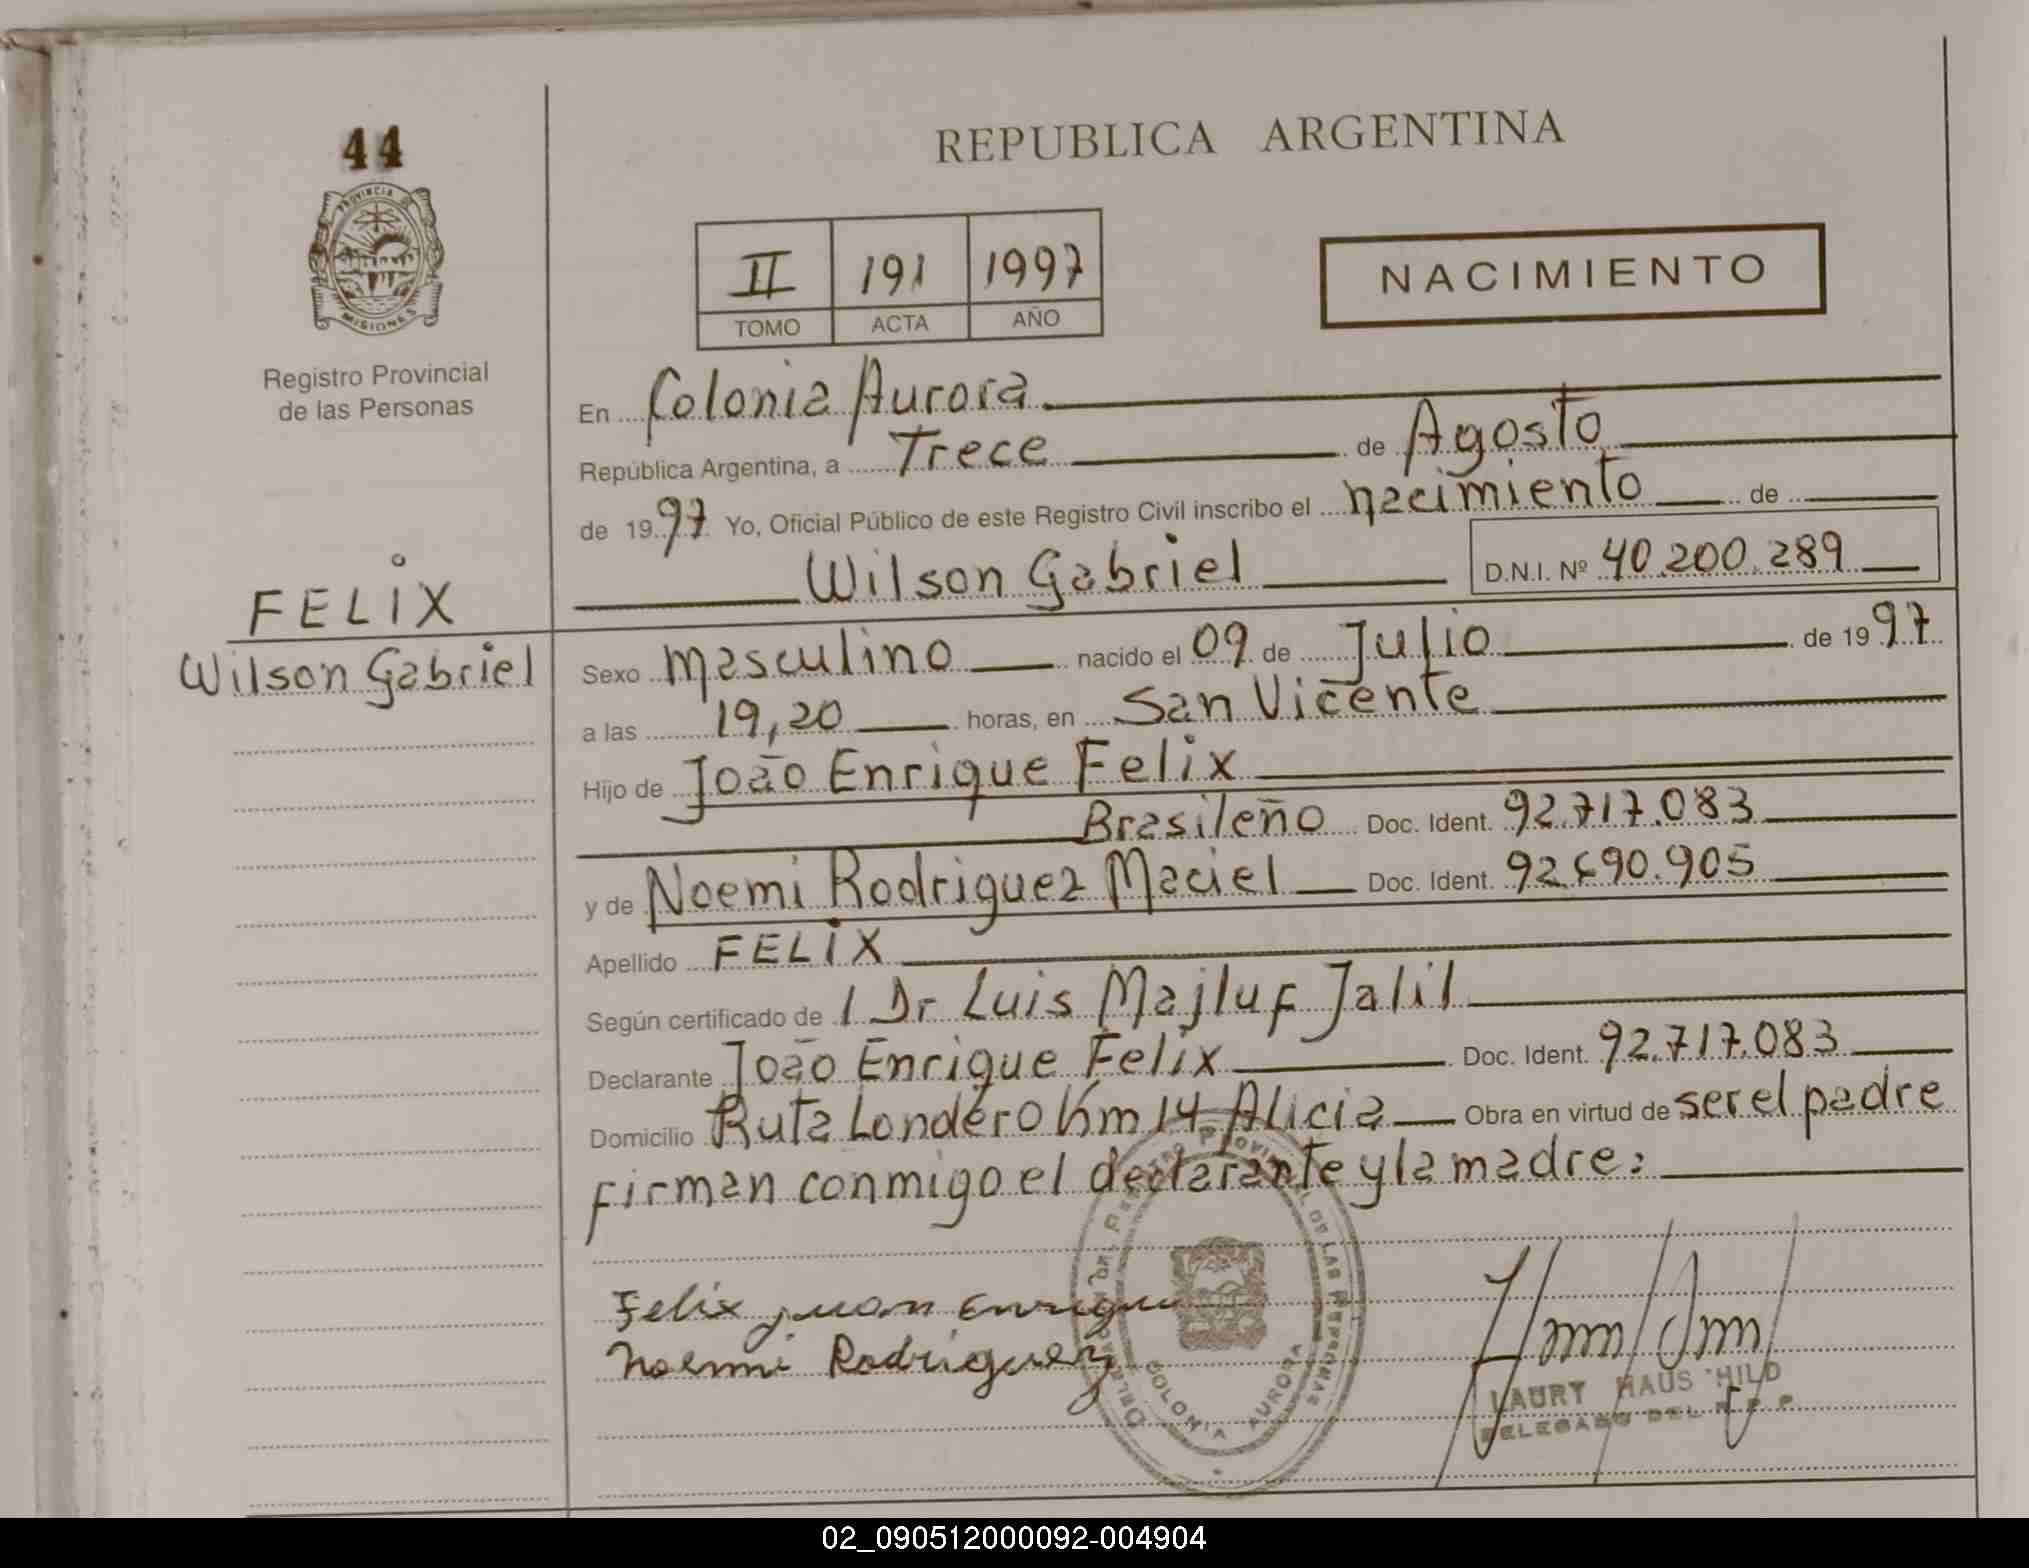 44
REPUBLICA ARGENTINA
PROVINCIA DE
MISIONES
II 191 1997
TOMO ACTA AÑO
NACIMIENTO
Registro Provincial
de las Personas
En Colonia Aurora
República Argentina, a Trece de Agosto
de 1997 Yo, Oficial Público de este Registro Civil inscribo el nacimiento de
Wilson Gabriel D.N.I. Nº 40.200.289
FELIX
Wilson Gabriel
Sexo Masculino nacido el 09 de Julio de 1997
a las 19,20 horas, en San Vicente
Hijo de João Enrique Felix
Brasileño Doc. Ident. 92.717.083
y de Noemi Rodriguez Maciel Doc. Ident. 92.690.905
Apellido FELIX
Según certificado de / Dr Luis Majluf Jalil
Declarante João Enrique Felix Doc. Ident. 92.717.083
Domicilio Ruta Londero Km 14 Alicia Obra en virtud de ser el padre
firman conmigo el declarante y la madre:
Felix Juan Enrique
Noemi Rodriguez
COLONIA AURORA
LAURY HAUS HILD
DELEGADO DEL R.P.P.
02_090512000092-004904